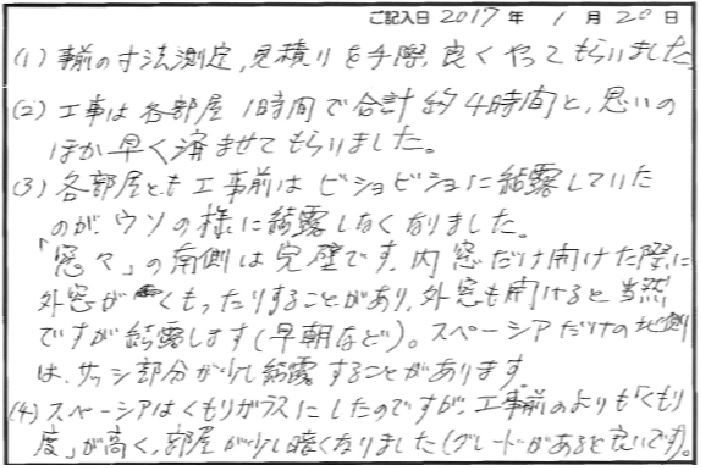 ご記入日 2017 年 1 月 20 日
(1) 事前の寸法測定,見積りを手際良くやってもらいました。
(2) 工事は各部屋1時間で合計約4時間と、思いの
ほか早く済ませてもらいました。
(3) 各部屋とも工事前はビショビショに結露していた
のが、ウソの様に結露しなくなりました。
「窓々」の南側は完璧です。内窓だけ開けた際に
外窓がくもったりすることがあり、外窓も開けると当然
ですが結露します(早朝など)。スペーシアだけの北側
は、サッシ部分が少し結露することがあります。
(4) スペーシアはくもりガラスにしたのですが、工事前のよりも「くもり
度」が高く、部屋が少し暗くなりました(グレードがあると良いです)。